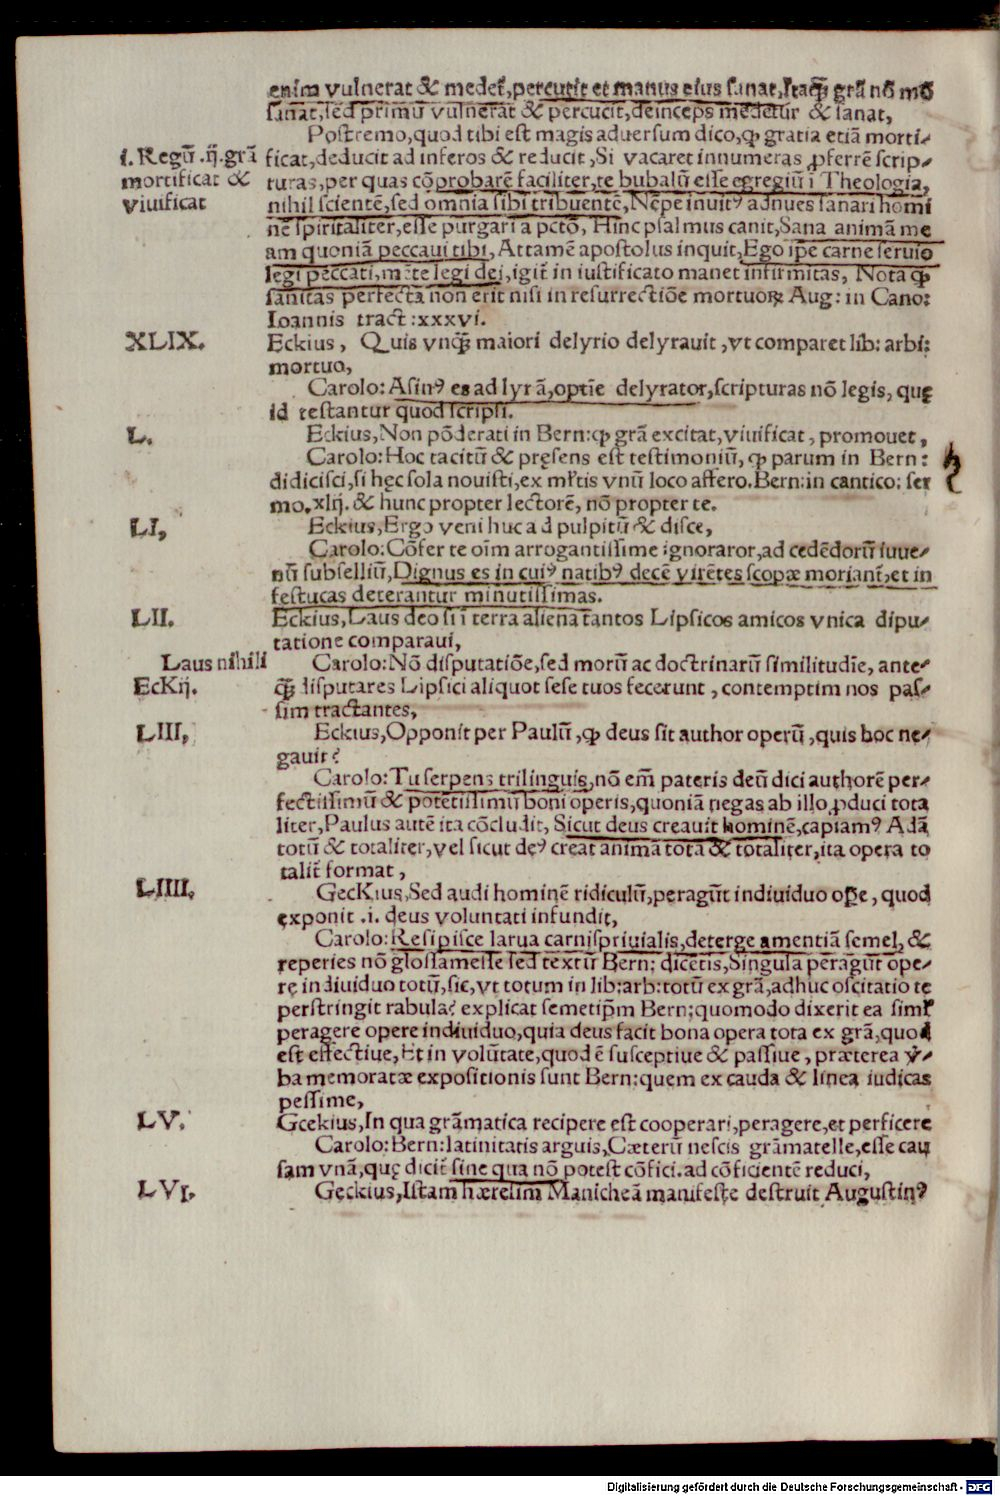 enim vulnerat & medet᷑, percutit et manus eius sanat, Itaqꝫ grā nō mō
sanat, sed primū vulnerat & percucit, deinceps medetur & sanat,
Postremo, quod tibi est magis aduersum dico, ꝙ gratia etiā morti-
i. Regū .ij. grā ficat, deducit ad inferos & reducit, Si vacaret innumeras ꝓferrē scrip-
mortificat & turas, per quas cōprobarē faciliter, te bubalū esse egregiū ī Theologia,
viuificat nihil scientē, sed omnia sibi tribuentē, Nēpe inuitꝰ adnues sanari homi
nē spiritaliter, esse purgari a pctō, Hinc psalmus canit, Sana animā me
am quoniā peccaui tibi, Attamē apostolus inquit, Ego ip̄e carne seruio
legi peccati, mēte legi dei, igit᷑ in iustificato manet infirmitas, Nota ꝙ
sanitas perfecta non erit nisi in resurrectiōe mortuoꝝ Aug: in Cano:
Ioannis tract: xxxvi.
XLIX. Eckius, Quis vnqꝫ maiori delyrio delyrauit, vt comparet lib: arbi:
mortuo,
Carolo: Asinꝰ es ad lyrā, optīe delyrator, scripturas nō legis, quę
id testantur quod scripsi.
L. Eckius, Non pōderati in Bern: ꝙ grā excitat, viuificat, promouet,
Carolo: Hoc tacitū & pręsens est testimoniū, ꝙ parum in Bern:
didicisci, si hęc sola nouisti, ex ml̄tis vnū loco affero. Bern: in cantico: ser
mo. xlij. & hunc propter lectorē, nō propter te.
LI, Eckius, Ergo veni huc ad pulpitū & disce,
Carolo: Cōfer te oīm arrogantissime ignoraror, ad cedēdorū iuue-
nū subselliū, Dignus es in cuiꝰ natibꝰ decē virētes scopæ moriant᷑, et in
festucas deterantur minutissimas.
LII. Eckius, Laus deo si ī terra aliena tantos Lipsicos amicos vnica dipu-
tatione comparaui,
Laus nihili Carolo: Nō disputatiōe, sed morū ac doctrinarū similitudīe, ante-
EcKij. qꝫ disputares Lipsici aliquot sese tuos fecerunt, contemptim nos pas-
sim tractantes,
LIII, Eckius, Opponit per Paulū, ꝙ deus sit author operū, quis hoc ne-
gauit?
Carolo: Tu serpens trilinguis, nō em̄ pateris deū dici authorē per-
fectissimū & potētissimū boni operis, quoniā negas ab illo ꝓduci tota
liter, Paulus autē ita cōcludit, Sicut deus creauit hominē, capiamꝰ Adā
totū & totaliter, vel sicut deꝰ creat animā totā & totaliter, ita opera to
talit᷑ format,
LIIII, GecKius, Sed audi hominē ridiculū, peragūt indiuiduo oꝑe, quod
exponit .i. deus voluntati infundit,
Carolo: Resipisce larua carnispriuialis, deterge amentiā semel, &
reperies nō glossam esse sed textū Bern: dicētis, Singula peragūt ope-
re indiuiduo totū, sic, vt totum in lib: arb: totū ex grā, adhuc oscitatio te
perstringit rabula? explicat semetip̄m Bern: quomodo dixerit ea siml̄
peragere opere indiuiduo, quia deus facit bona opera tota ex grā, quod
est effectiue, Et in volūtate, quod ē susceptiue & passiue, præterea v̓-
ba memoratæ expositionis sunt Bern: quem ex cauda & linea iudicas
pessime,
LV. Gcekius, In qua grāmatica recipere est cooperari, peragere, et perficere
Carolo: Bern: latinitatis arguis, Cæterū nescis grāmatelle, esse cau
sam vnā, quę dicit᷑ sine qua nō potest cōfici. ad cōficientē reduci,
LVI, Gęckius, Istam hæresim Manicheā manifestę destruit Augustinꝰ
Digitalisierung gefördert durch die Deutsche Forschungsgemeinschaft - DFG